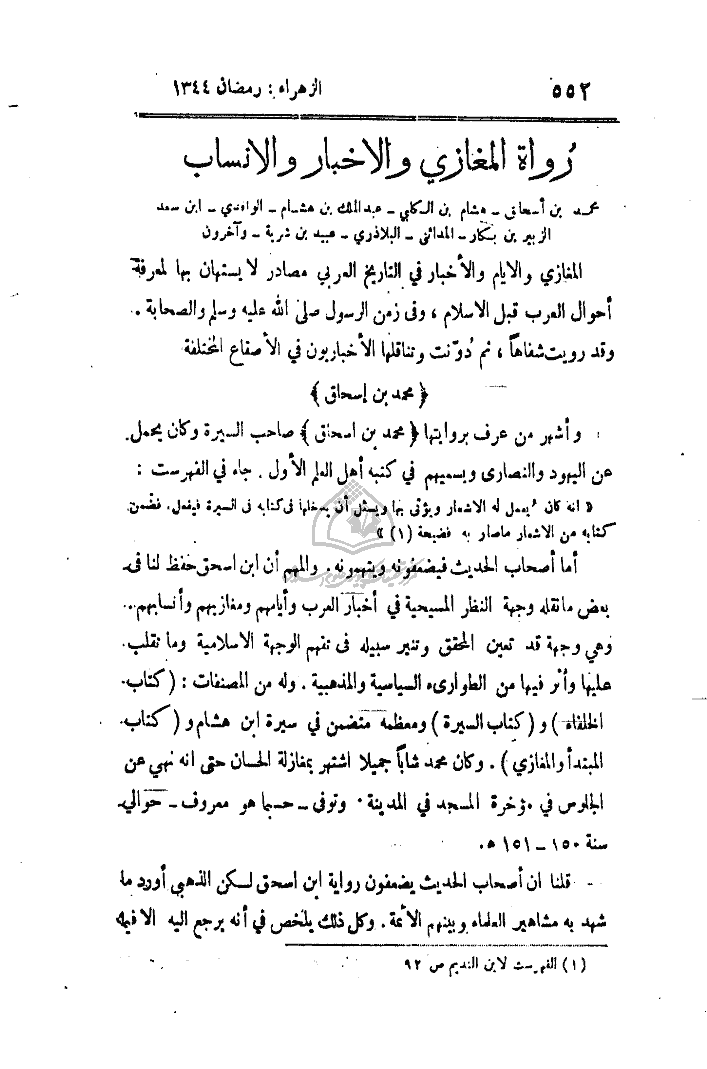 ٥٥٢
الزهراء : رمضان ١٣٤٤
رُواة المغازي والاخبار والانساب
محمد بن أسحاق – هشام بن الكلبي – عبدالملك بن هشام – الواقدي – ابن سعد
الزبير بن بكار – المدائني – البلاذري – عبيد بن شربة – وآخرون
المغازي والايام والأخبار في التاريخ العربي مصادر لا يستهان بها لمعرفة
أحوال العرب قبل الاسلام ، وفى زمن الرسول صلى الله عليه وسلم والصحابة .
وقد رويت شفاهاً ، ثم دُوّنت وتناقلها الأخباريون في الأصقاع المختلفة
﴿ محمد بن إسحاق ﴾
وأشهر من عرف بروايتها ﴿ محمد بن اسحاق ﴾ صاحب السيرة وكان يحمل
عن اليهود والنصارى ويسميهم في كتبه أهل العلم الأول . جاء في الفهرست :
« انه كان يُعمل له الاشعار ويؤتى بها ويسئل أن يدخلها فى كتابه فى السيرة فيفعل، فضمن
كتابه من الاشعار ماصار به فضيحة (١) »
أما أصحاب الحديث فيضعفونه ويتهمونه . والمهم أن ابن اسحق حفظ لنا فى
بعض مانقله وجهة النظر المسيحية في أخبار العرب وأيامهم ومغازيهم وأنسابهم..
وهي وجهة قد تعين المحقق وتنير سبيله فى تفهم الوجهة الاسلامية وما تقلب
عليها وأثر فيها من الطوارىء السياسية والمذهبية . وله من المصنفات : ( كتاب
الخلفاء ) و ( كتاب السيرة ) ومعظمه متضمن في سيرة ابن هشام و ( كتاب
المبتدأ والمغازي ) . وكان محمد شاباً جميلا اشتهر بمغازلة الحسان حتى انه نهي عن
الجلوس في مؤخرة المسجد في المدينة . وتوفى – حسبما هو معروف – حوالي
سنة ١٥٠ – ١٥١ ه .
قلنا ان أصحاب الحديث يضعفون رواية ابن اسحق لكن الذهبي أورد ما
شهد به مشاهير العلماء وبينهم الأئمة . وكل ذلك يلخص في أنه يرجع اليه الا فيما
(١) الفهرست لابن النديم ص ٩٢